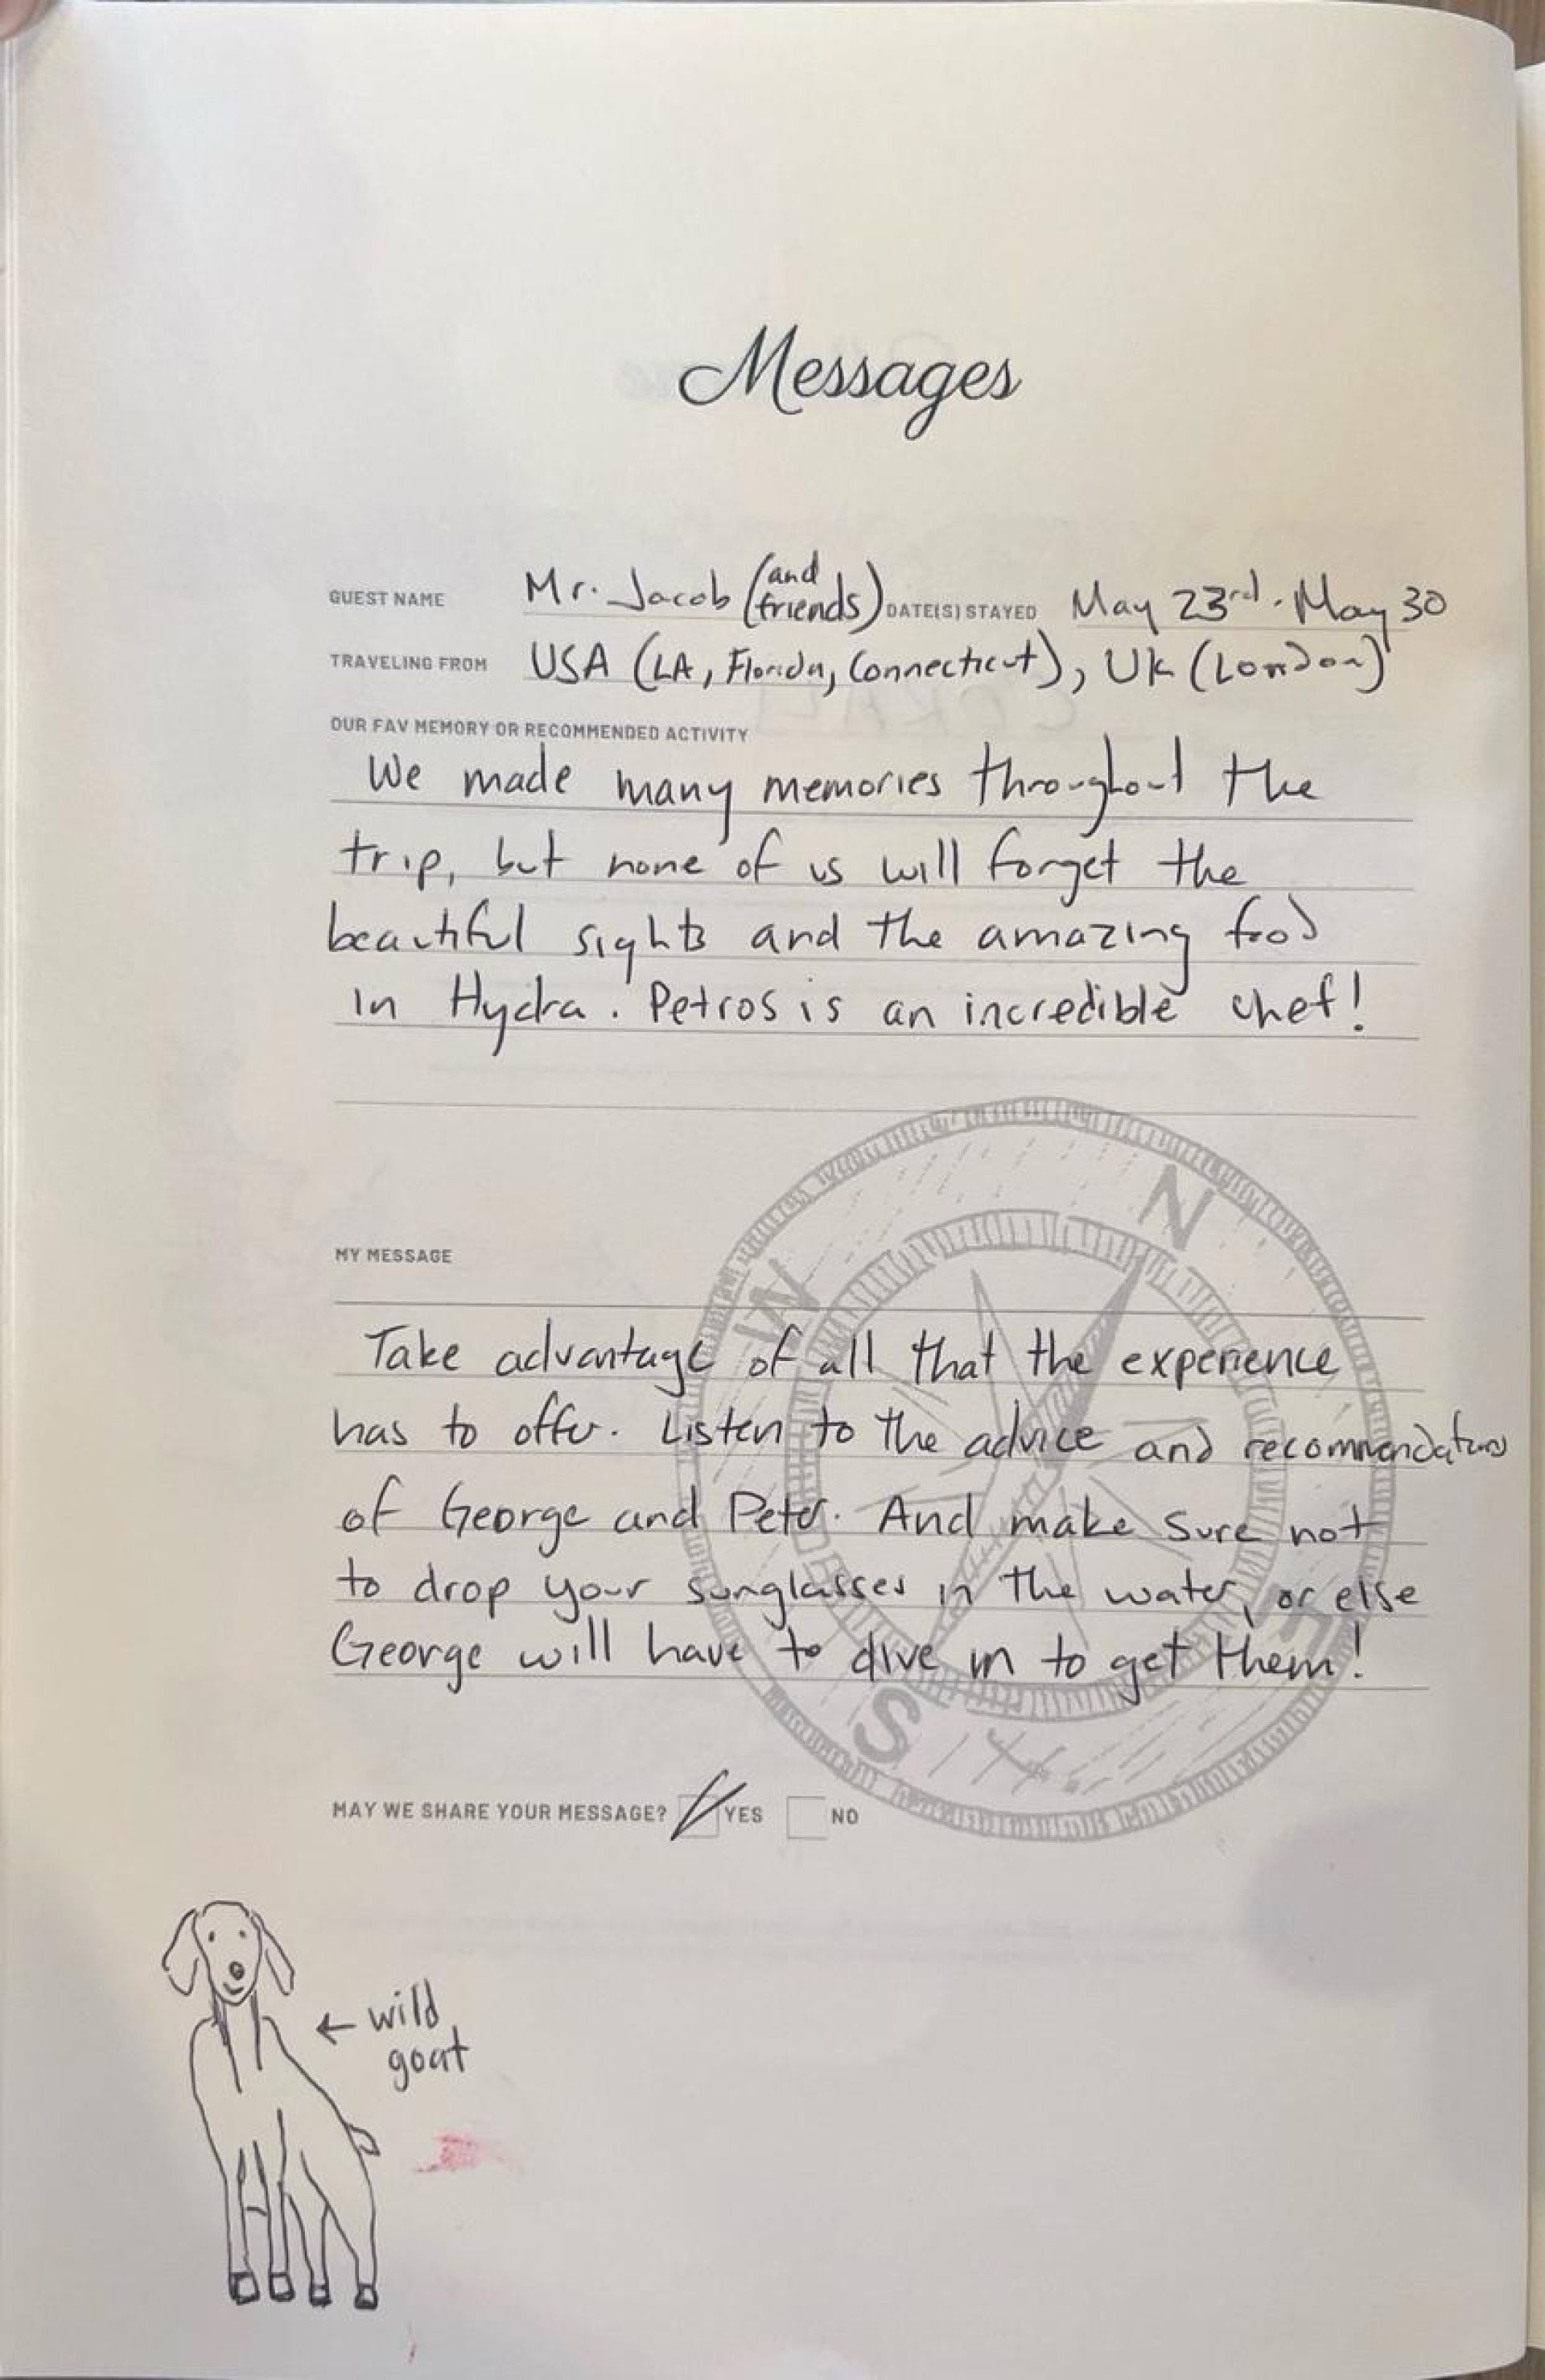 Messages
GUEST NAME Mr. Jacob (and friends) DATE(S) STAYED May 23rd - May 30
TRAVELING FROM USA (LA, Florida, Connecticut), UK (London)
OUR FAV MEMORY OR RECOMMENDED ACTIVITY
We made many memories throughout the
trip, but none of us will forget the
beautiful sights and the amazing food
in Hydra. Petros is an incredible chef!
N
W
MY MESSAGE
Take advantage of all that the experience
has to offer. Listen to the advice and recommendations
of George and Peter. And make sure not
to drop your sunglasses in the water, or else
E
George will have to dive in to get them!
S
MAY WE SHARE YOUR MESSAGE? YES NO
← wild
goat